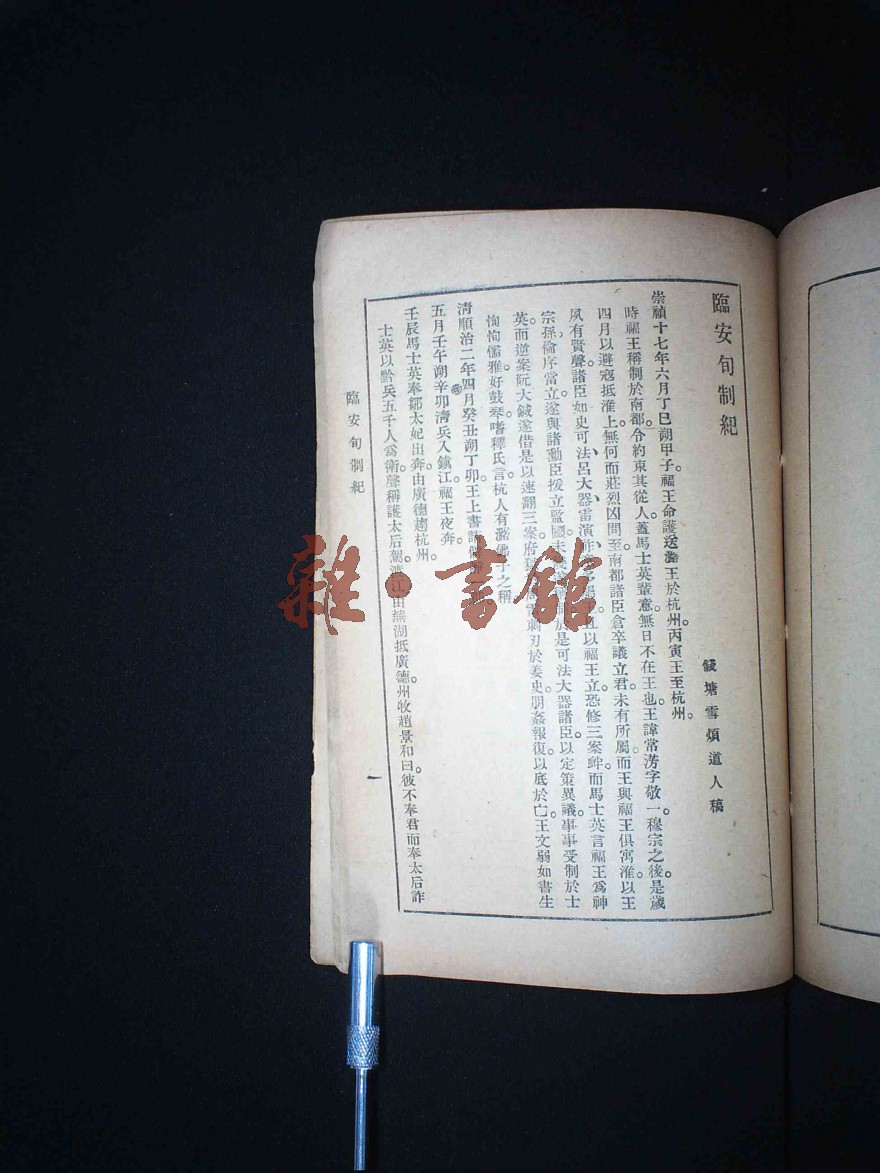 臨安旬制紀
錢塘雪煩道人稿
崇禎十七年六月丁巳朔甲子。福王命護送潞王於杭州。丙寅王至杭州。
時福王稱制於南都。令約束其從人。蓋馬士英輩意無日不在王也。王諱常淓字敬一。穆宗之後。是歲
四月以避寇抵淮上。無何而莊烈凶問至。南都諸臣倉卒議立君。未有所屬。而王與福王俱寓淮。以王
夙有賢聲。諸臣如史可法、呂大器、雷演祚 且以福王立。恐修三案衅。而馬士英言福王爲神
宗孫。倫序當立。遂與諸勳臣援立監國。未 是可法大器諸臣。以定策異議。事事受制於士
英。而逆案阮大鋮。遂借是以速翻三案。府 刺刃於姜史。朋姦報復。以底於亡。王文弱如書生。
恂恂儒雅。好鼓琴。嗜釋氏言。杭人有潞佛子之稱
清順治二年四月癸丑朔丁卯。王上書請
五月壬午朔辛卯。清兵入鎮江。福王夜奔。
壬辰。馬士英奉鄒太妃出奔。由廣德趨杭州。
士英以黔兵五千人爲衛。聲稱護太后駕。渡江由蕪湖抵廣德州。收趙景和曰。彼不奉君而奉太后。詐
臨安旬制紀
一
雜·書館